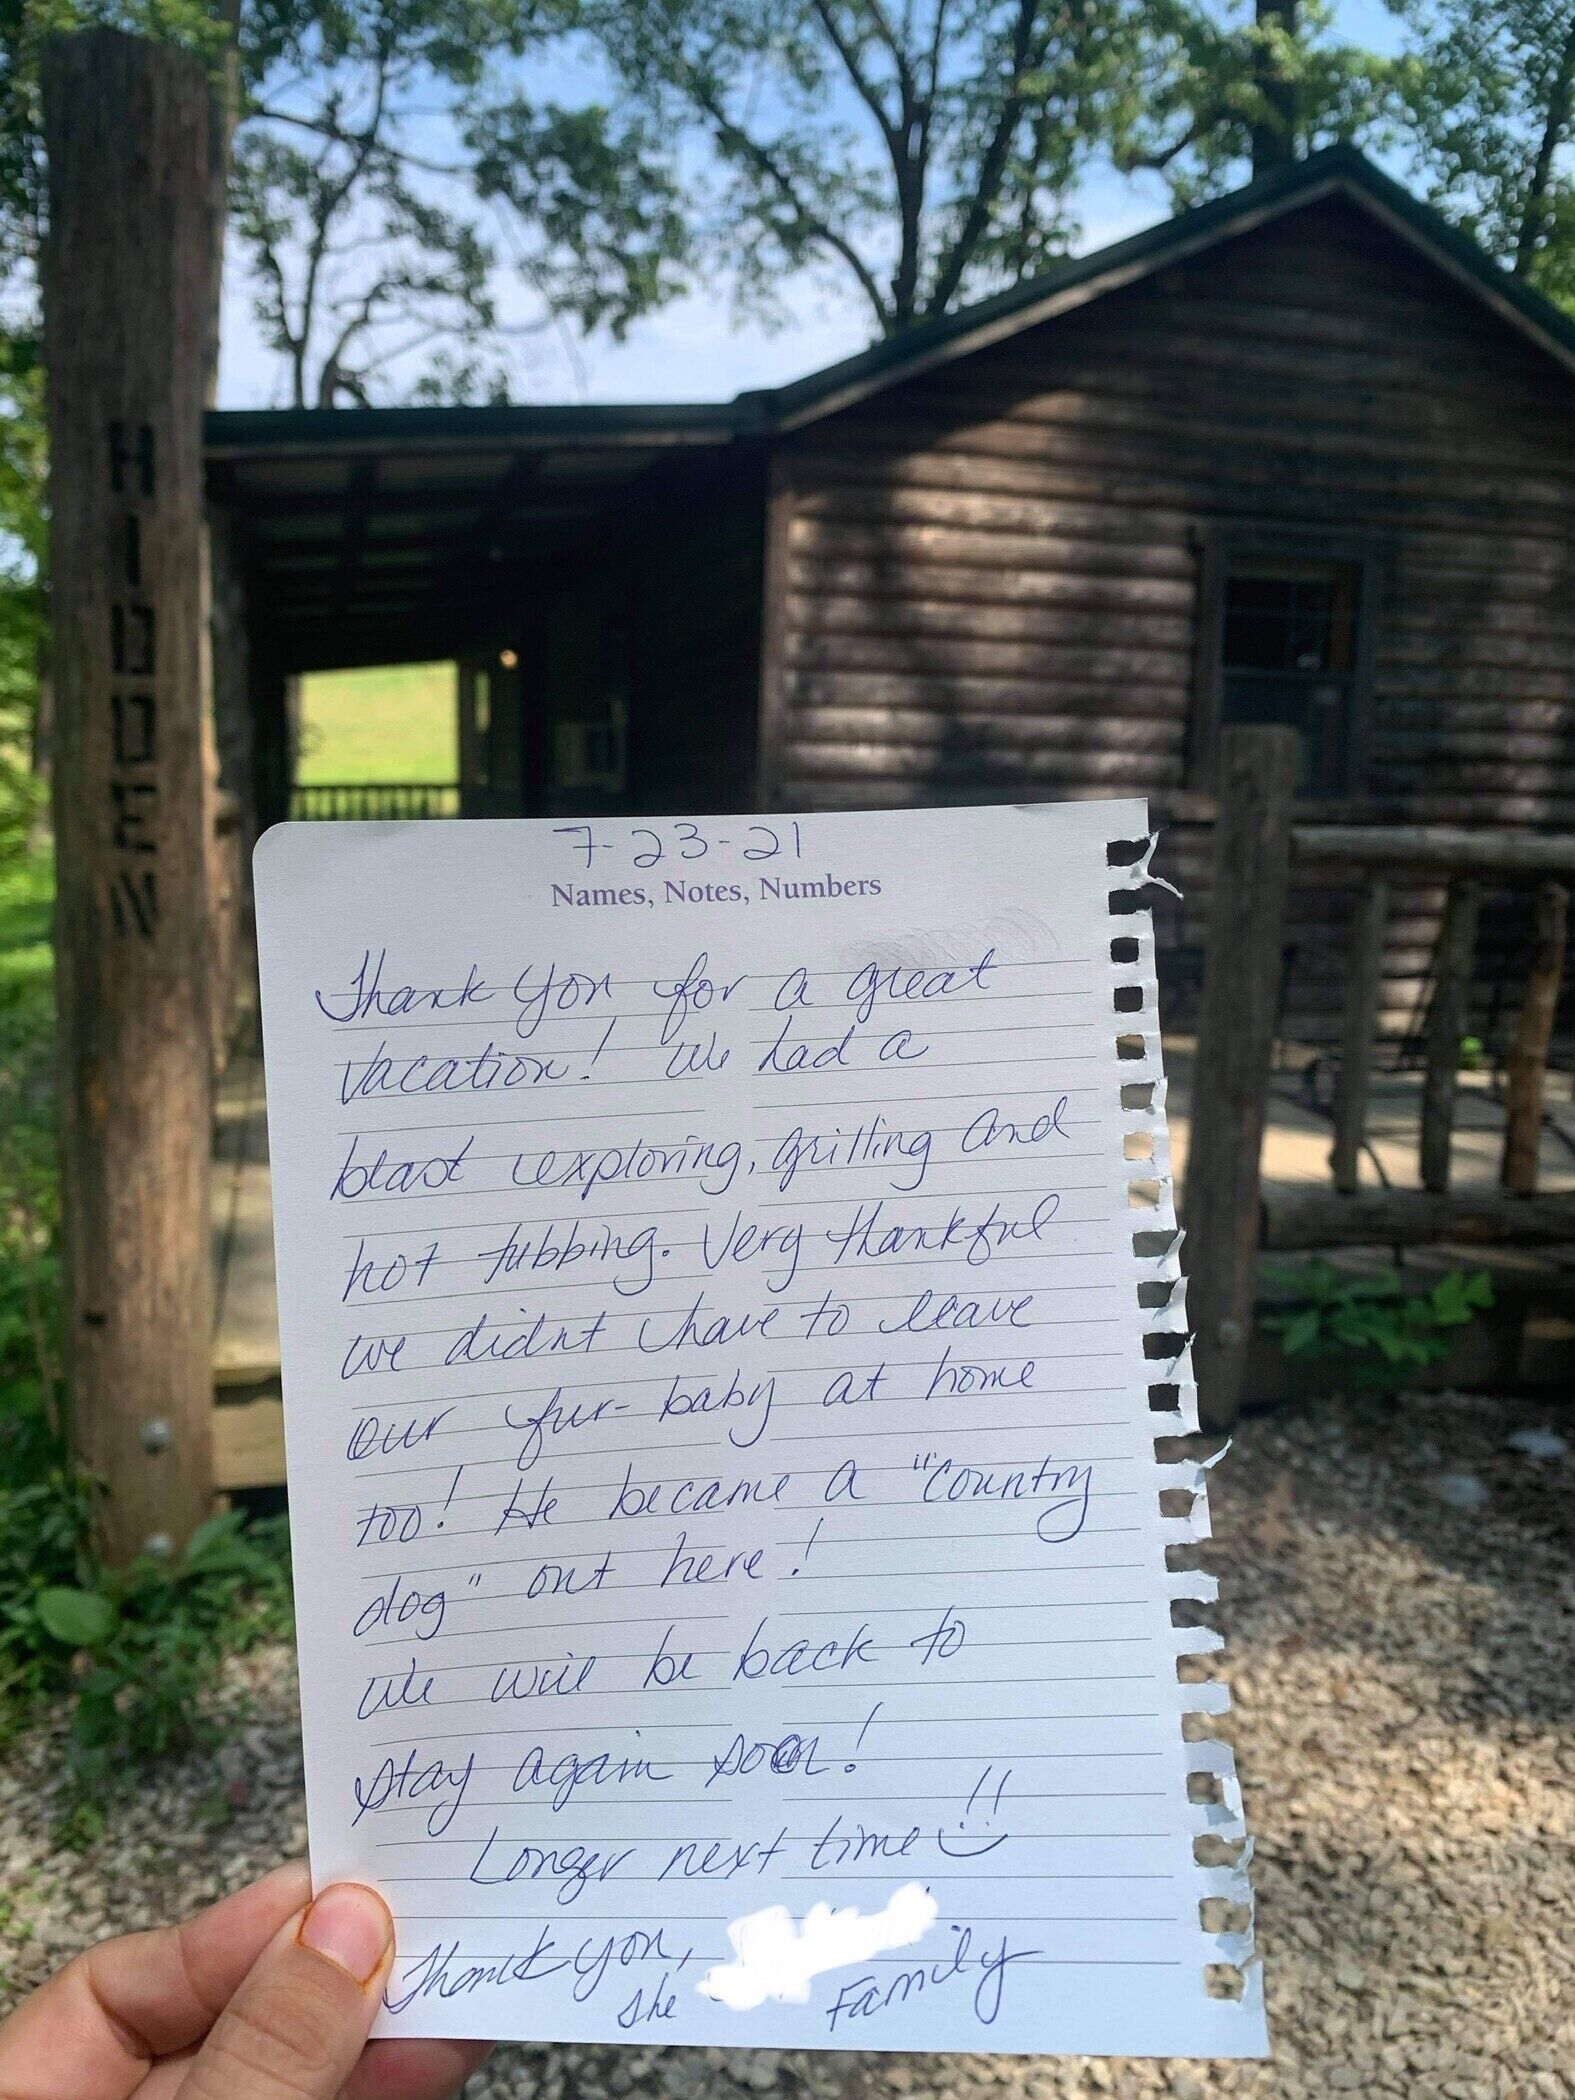 HIDDEN
7-23-21
Names, Notes, Numbers
Thank you for a great
vacation! We had a
blast exploring, grilling and
hot tubbing. Very thankful
we didnt have to leave
our fur-baby at home
too! He became a "country
dog" out here!
We will be back to
stay again soon!
Longer next time!!
Thank you,
The Family